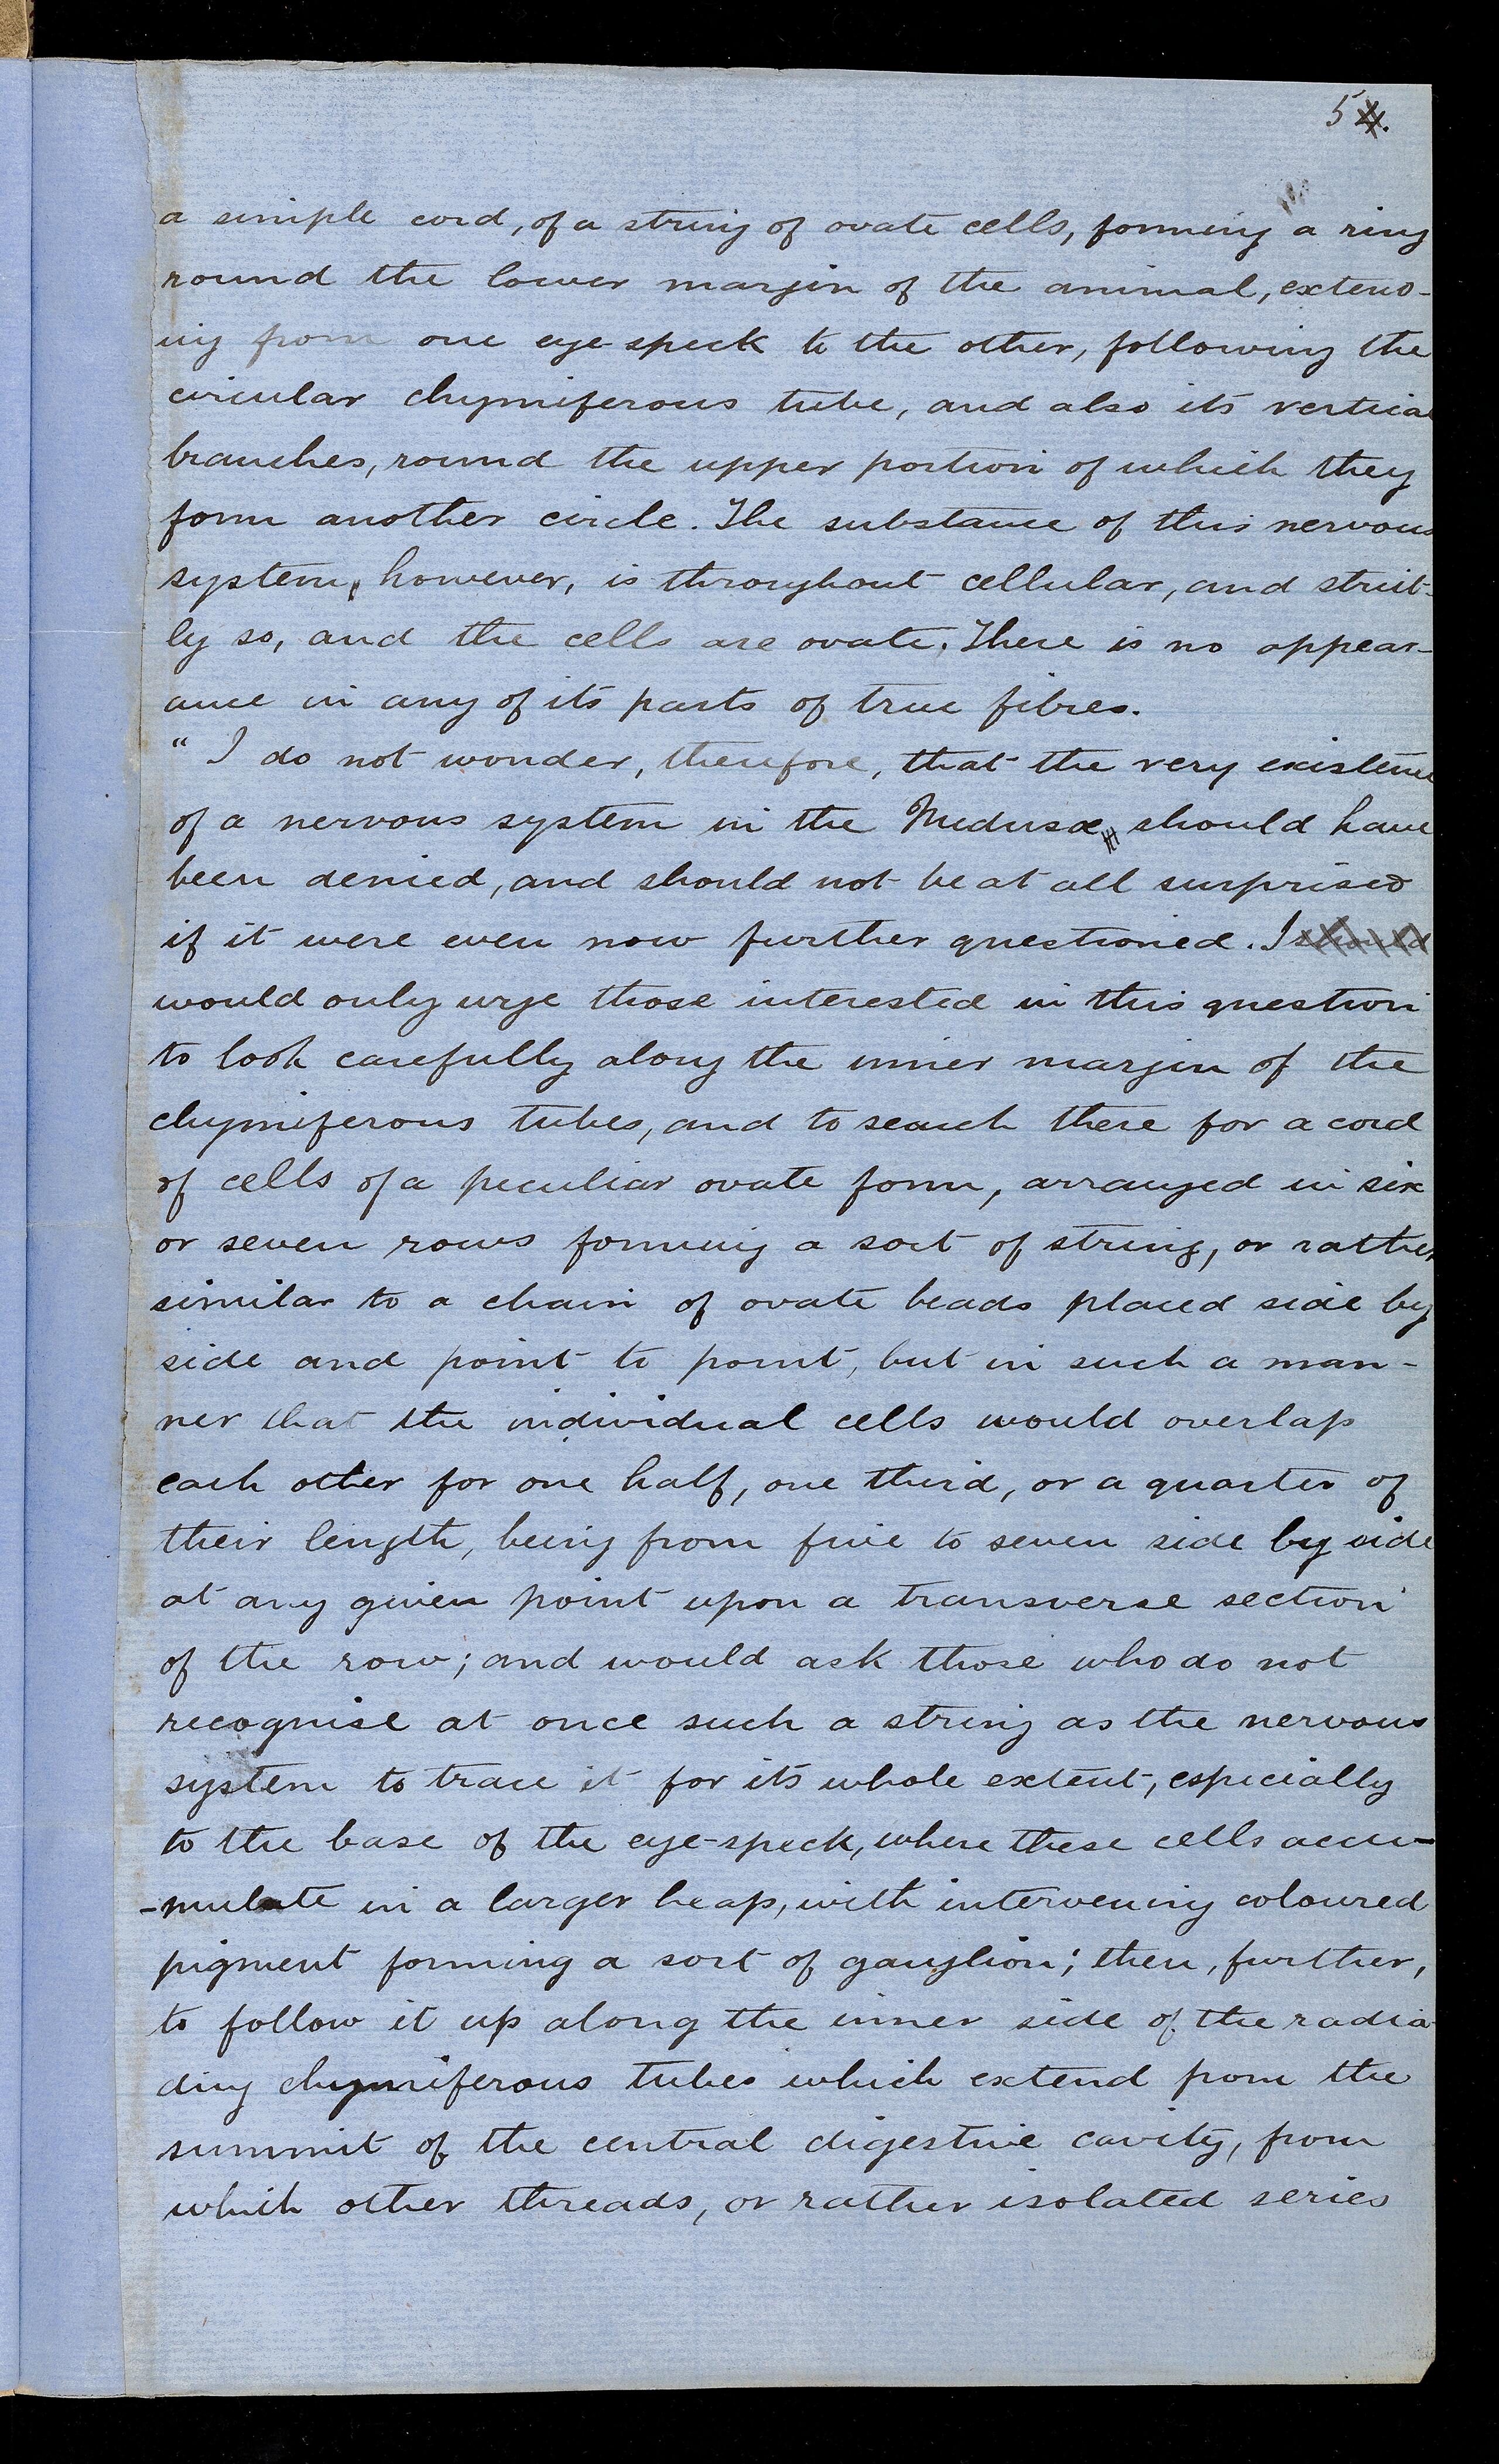 5
a simple cord, of a string of ovate cells, forming a ring
round the lower margin of the animal, extend-
ing from one eye-speck to the other, following the
circular chymiferous tube, and also its vertical
branches, round the upper portion of which they
form another circle. The substance of this nervous
system, however, is throughout cellular, and strict-
ly so, and the cells are ovate. There is no appear-
ance in any of its parts of true fibres.
" I do not wonder, therefore, that the very existence
of a nervous system in the Medusæ should have
been denied, and should not be at all surprised
if it were even now further questioned. I should
would only urge those interested in this question
to look carefully along the inner margin of the
chymiferous tubes, and to search there for a cord
of cells of a peculiar ovate form, arranged in six
or seven rows forming a sort of string, or rather
similar to a chain of ovate beads placed side by
side and point to point, but in such a man-
ner that the individual cells would overlap
each other for one half, one third, or a quarter of
their length, being from five to seven side by side
at any given point upon a transverse section
of the row; and would ask those who do not
recognise at once such a string as the nervous
system to trace it for its whole extent, especially
to the base of the eye-speck, where these cells accu-
-mulate in a larger heap, with intervening coloured
pigment forming a sort of ganglion; then, further,
to follow it up along the inner side of the radia
ding chymiferous tubes which extend from the
summit of the central digestive cavity, from
which other threads, or rather isolated series